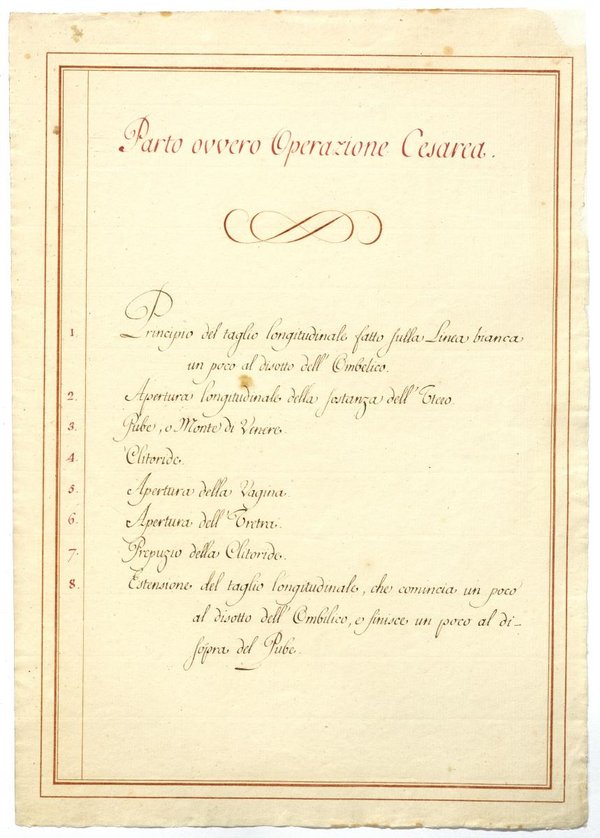 Parto ovvero Operazione Cesarea.
1. Principio del taglio longitudinale fatto sulla Linea bianca
un poco al disotto dell' Ombelico.
2. Apertura longitudinale della sostanza dell' Utero
3. Pube, o Monte di Venere.
4. Clitoride.
5. Apertura della Vagina.
6. Apertura dell' Uretra.
7. Prepuzio della Clitoride.
8. Estensione del taglio longitudinale, che comincia un poco
al disotto dell' Ombilico, e finisce un poco al di-
sopra del Pube.